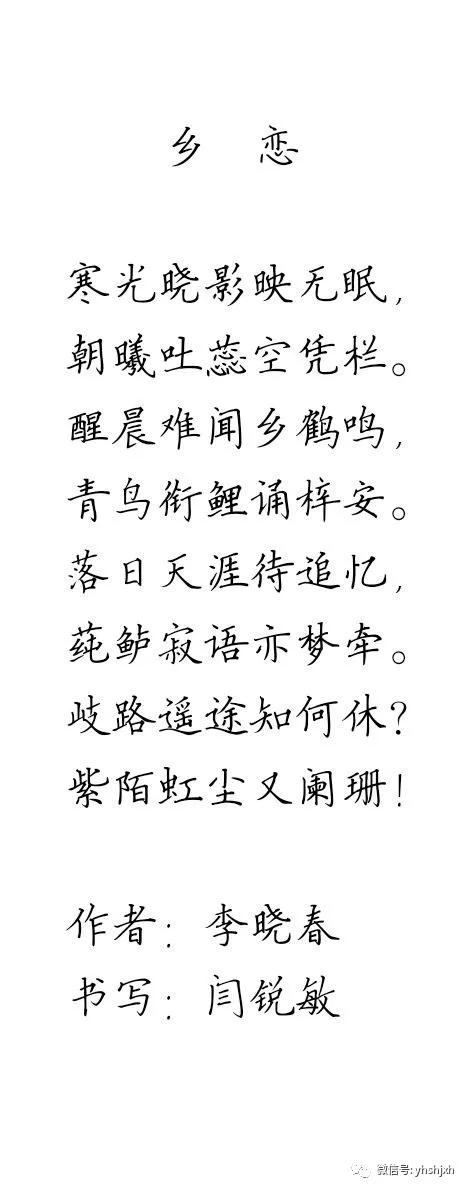 乡 恋
寒光晓影映无眠，
朝曦吐蕊空凭栏。
醒晨难闻乡鹤鸣，
青鸟衔鲤诵梓安。
落日天涯待追忆，
莼鲈寂语亦梦牵。
歧路遥途知何休？
紫陌虹尘又阑珊！
作者：李晓春
书写：闫锐敏
微信号: yhshjxh